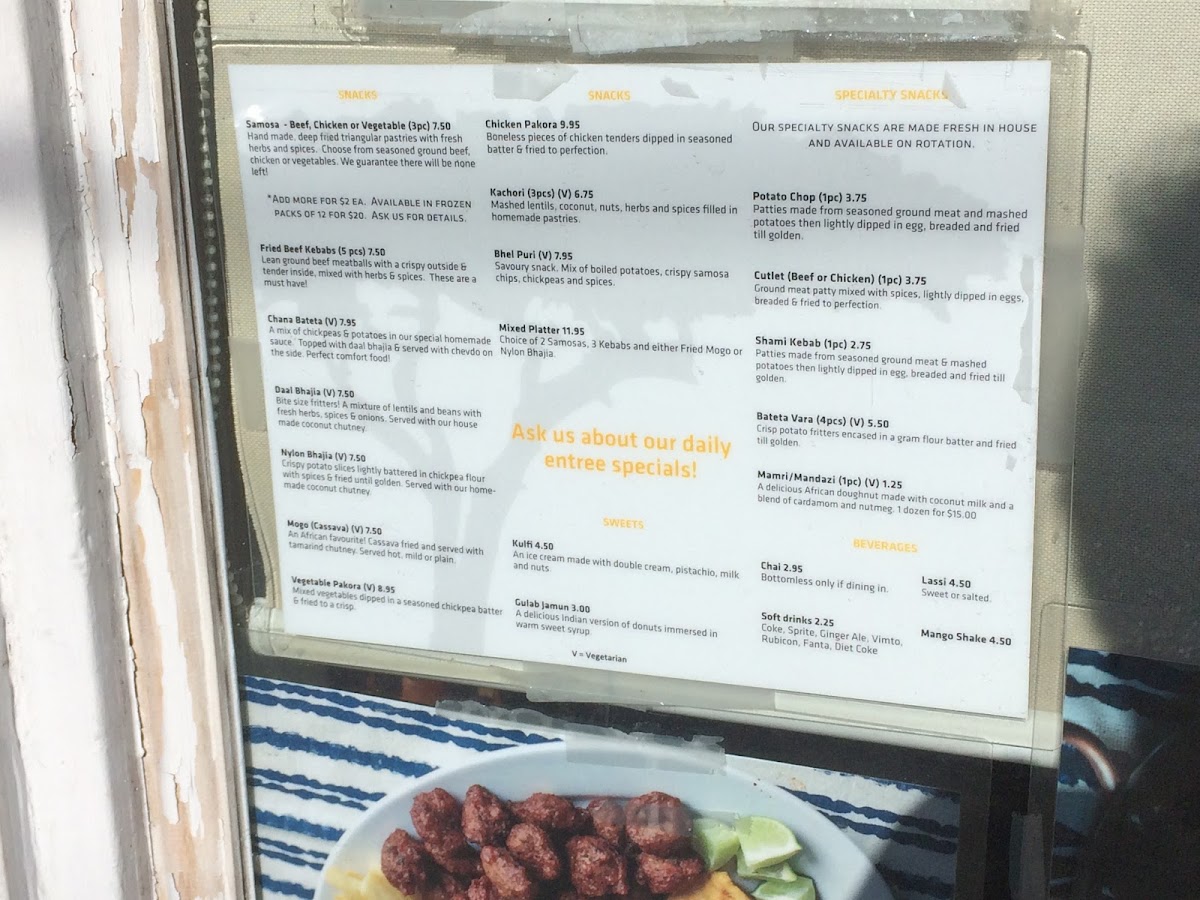 SNACKS
Samosa - Beef, Chicken or Vegetable (3pc) 7.50
Hand made, deep fried triangular pastries with fresh
herbs and spices. Choose from seasoned ground beef,
chicken or vegetables. We guarantee there will be none
left!
*Add more for $2 ea. Available in frozen
packs of 12 for $20. Ask us for details.
Fried Beef Kebabs (5 pcs) 7.50
Lean ground beef meatballs with a crispy outside &
tender inside, mixed with herbs & spices. These are a
must have!
Chana Bateta (V) 7.95
A mix of chickpeas & potatoes in our special homemade
sauce. Topped with daal bhajia & served with chevdo on
the side. Perfect comfort food!
Daal Bhajia (V) 7.50
Bite size fritters! A mixture of lentils and beans with
fresh herbs, spices & onions. Served with our house
made coconut chutney.
Nylon Bhajia (V) 7.50
Crispy potato slices lightly battered in chickpea flour
with spices & fried until golden. Served with our home-
made coconut chutney.
Mogo (Cassava) (V) 7.50
An African favourite! Cassava fried and served with
tamarind chutney. Served hot, mild or plain.
Vegetable Pakora (V) 8.95
Mixed vegetables dipped in a seasoned chickpea batter
& fried to a crisp.
SNACKS
Chicken Pakora 9.95
Boneless pieces of chicken tenders dipped in seasoned
batter & fried to perfection.
Kachori (3pcs) (V) 6.75
Mashed lentils, coconut, nuts, herbs and spices filled in
homemade pastries.
Bhel Puri (V) 7.95
Savoury snack. Mix of boiled potatoes, crispy samosa
chips, chickpeas and spices.
Mixed Platter 11.95
Choice of 2 Samosas, 3 Kebabs and either Fried Mogo or
Nylon Bhajia.
Ask us about our daily
entree specials!
SWEETS
Kulfi 4.50
An ice cream made with double cream, pistachio, milk
and nuts.
Gulab Jamun 3.00
A delicious Indian version of donuts immersed in
warm sweet syrup.
V = Vegetarian
SPECIALTY SNACKS
Our specialty snacks are made fresh in house
and available on rotation.
Potato Chop (1pc) 3.75
Patties made from seasoned ground meat and mashed
potatoes then lightly dipped in egg, breaded and fried
till golden.
Cutlet (Beef or Chicken) (1pc) 3.75
Ground meat patty mixed with spices, lightly dipped in eggs,
breaded & fried to perfection.
Shami Kebab (1pc) 2.75
Patties made from seasoned ground meat & mashed
potatoes then lightly dipped in egg, breaded and fried till
golden.
Bateta Vara (4pcs) (V) 5.50
Crisp potato fritters encased in a gram flour batter and fried
till golden.
Mamri/Mandazi (1pc) (V) 1.25
A delicious African doughnut made with coconut milk and a
blend of cardamom and nutmeg. 1 dozen for $15.00
BEVERAGES
Chai 2.95
Bottomless only if dining in.
Soft drinks 2.25
Coke, Sprite, Ginger Ale, Vimto,
Rubicon, Fanta, Diet Coke
Lassi 4.50
Sweet or salted.
Mango Shake 4.50